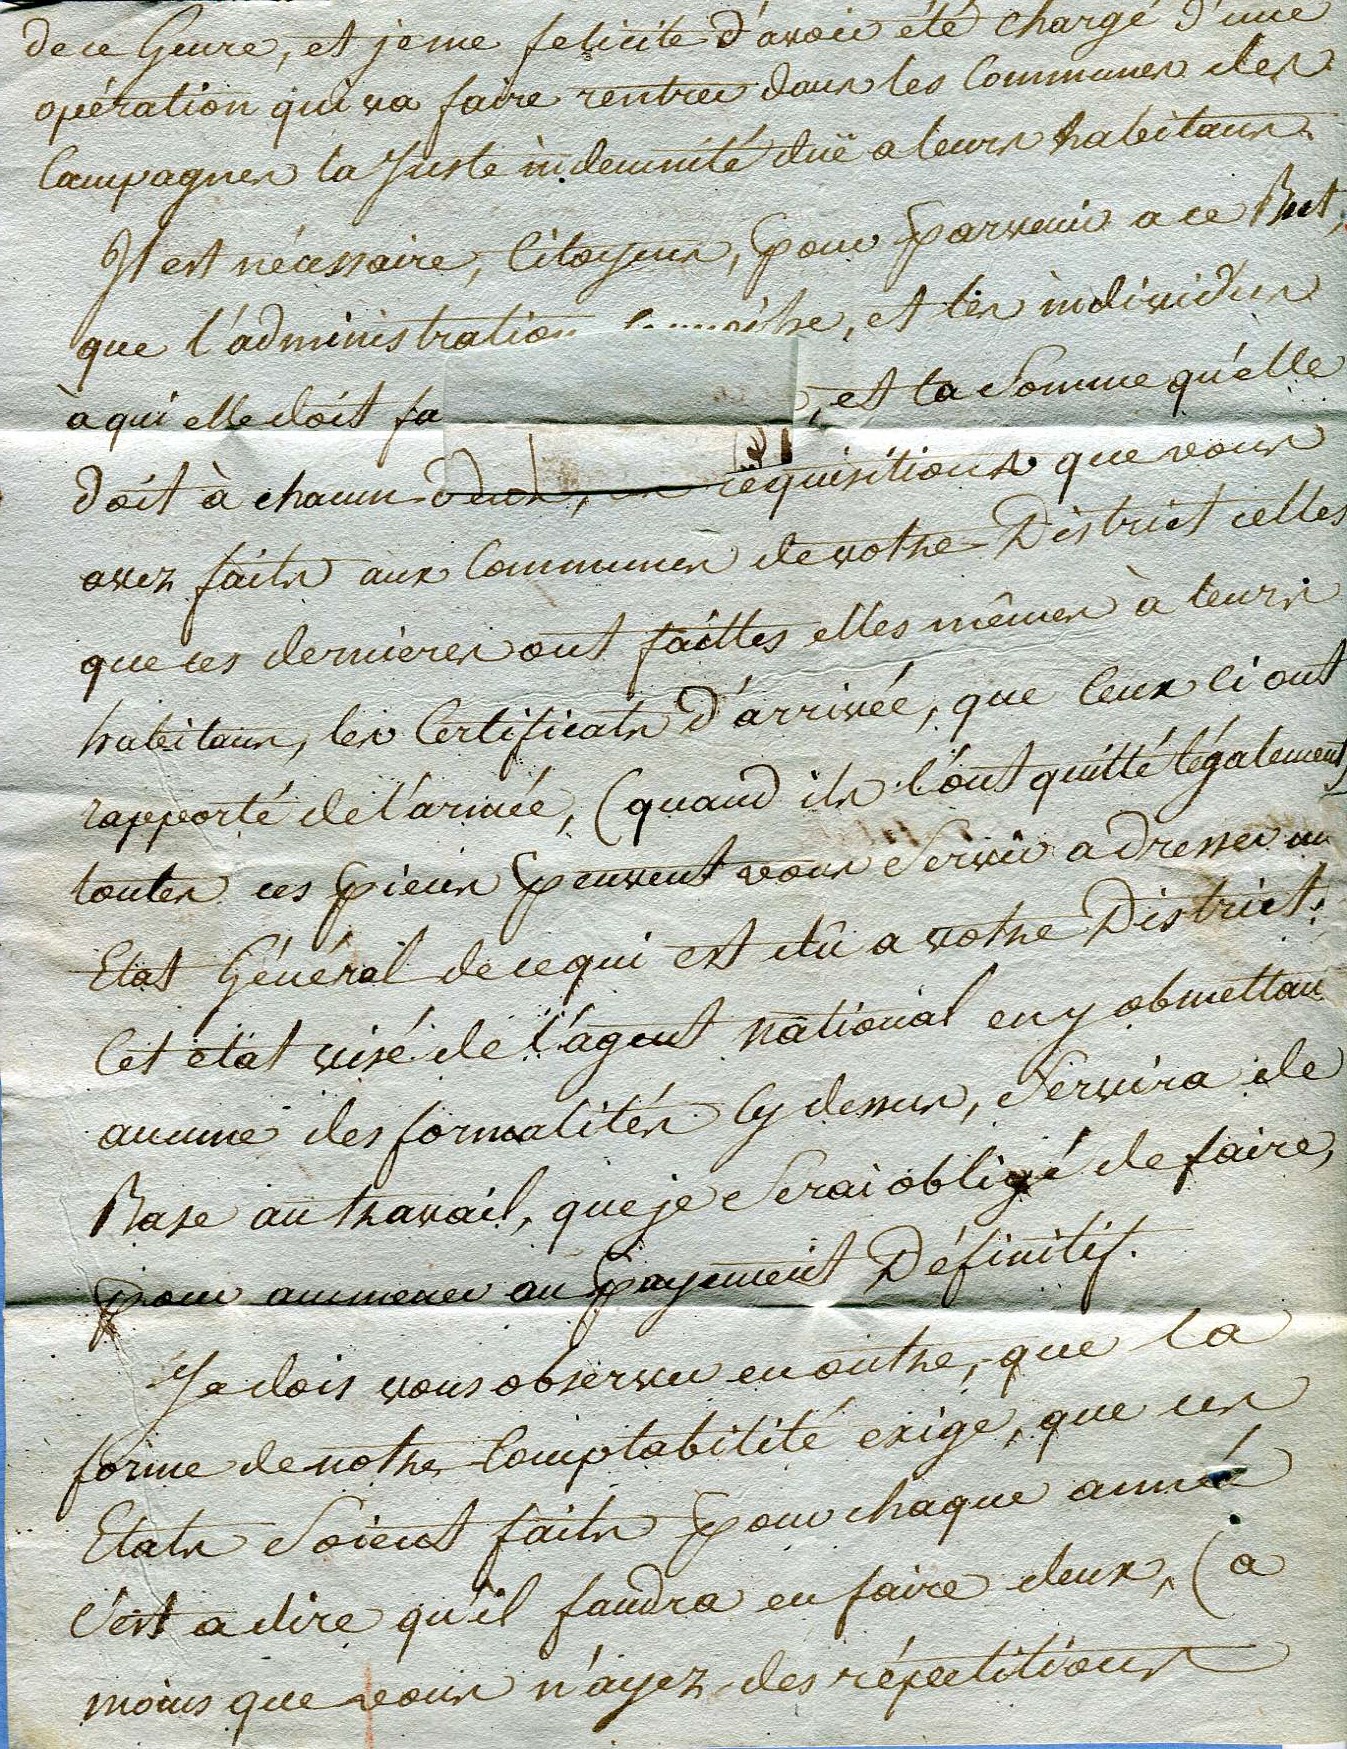 de ce Genre, et je me felicite d'avoir été chargé d'une
opération qui va faire rentrer dans les Communes des
Campagnes la Juste indemnité düe a leurs habitans.
Il est nécessaire, Citoyens, pour parvenir a ce But,
que l'administration connoisse, et les individus
à qui elle doit fa , et la Somme qu'elle
doit à chacun d'eux, réquisitions que vous
avez faits aux Communes de votre District celles
que ces dernieres ont faittes elles mêmes à leurs
habitans, les Certificats d'arrivée, que Ceux Ci ont
rapporté de l'armée, (quand ils l'ont quitté légalement)
toutes ces pieces peuvent vous Servir a dresser un
Etat Général de ce qui est dû a votre District;
Cet etat visé de l'agent national en y obmettant
aucune des formalités Cy dessus, Servira de
Base au travail, que je Serai obligé de faire,
pour ammener au payement Définitif.
Je dois vous observer en outre, que la
forme de notre Comptabilité exige, que ces
Etats Soient faits pour chaque année
C'est a dire qu'il faudra en faire deux, (a
moins que vous n'ayez des répetitions